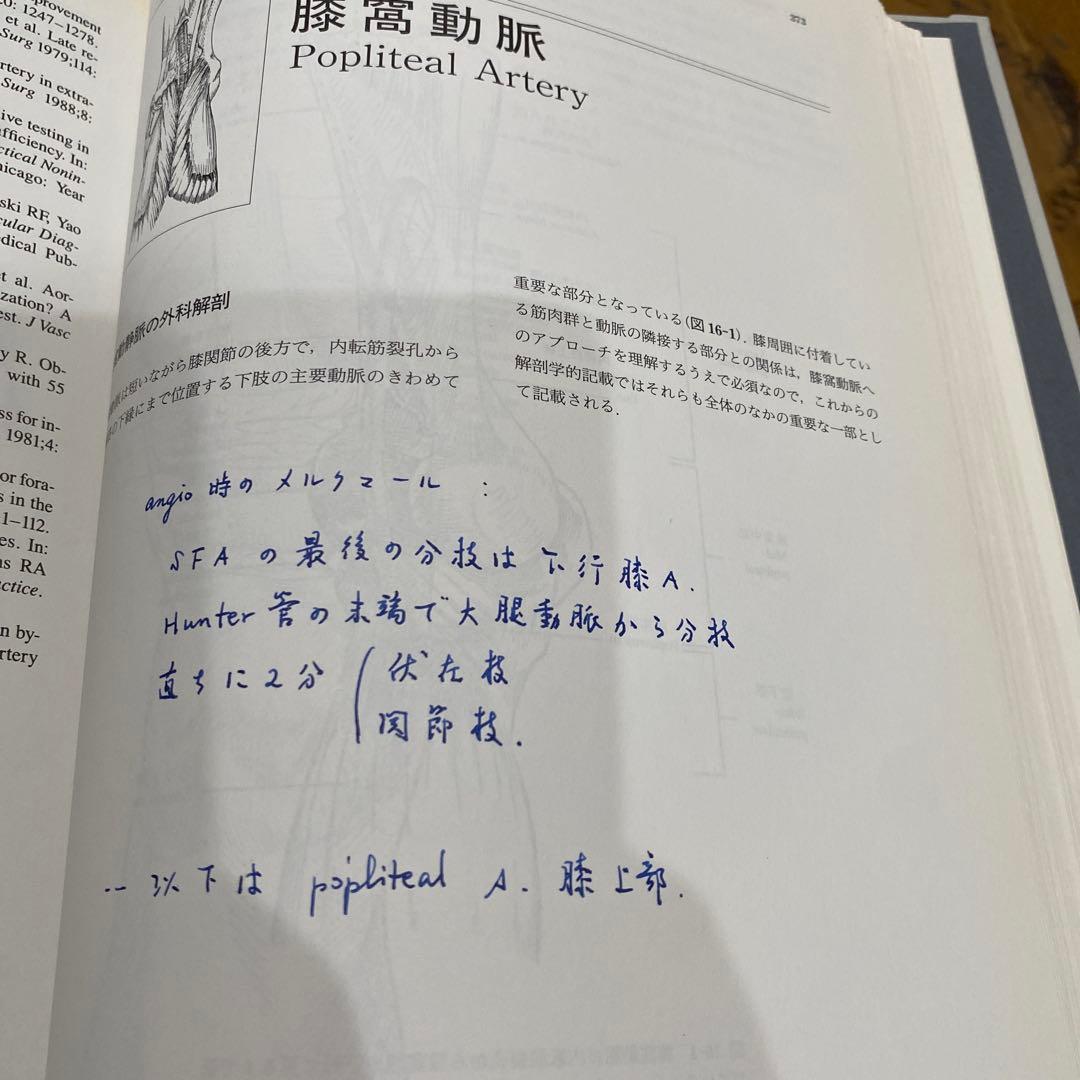 provement
0: 1247–1278.
et al. Late re-
Surg 1979;114:
rtery in extra-
Surg 1988;8:
ive testing in
fficiency. In:
ctical Nonin-
hicago: Year
ski RF, Yao
cular Diag-
edical Pub-
t al. Aor-
zation? A
est. J Vasc
y R. Ob-
with 55
ss for in-
1981;4:
or fora-
s in the
1–112.
es. In:
as RA
ctice.
n by-
rtery
373
膝窩動脈
Popliteal Artery
動静脈の外科解剖
脈は短いながら膝関節の後方で，内転筋裂孔から
の下縁にまで位置する下肢の主要動脈のきわめて
重要な部分となっている(図16-1)．膝周囲に付着してい
る筋肉群と動脈の隣接する部分との関係は，膝窩動脈へ
のアプローチを理解するうえで必須なので，これからの
解剖学的記載ではそれらも全体のなかの重要な一部とし
て記載される．
angio 時の メルクマール :
SFA の最後の分枝は 下行膝A.
Hunter 管の末端で大腿動脈から分枝
直ちに2分 ( 伏在枝
関節枝.
-- 以下は popliteal A. 膝上部.